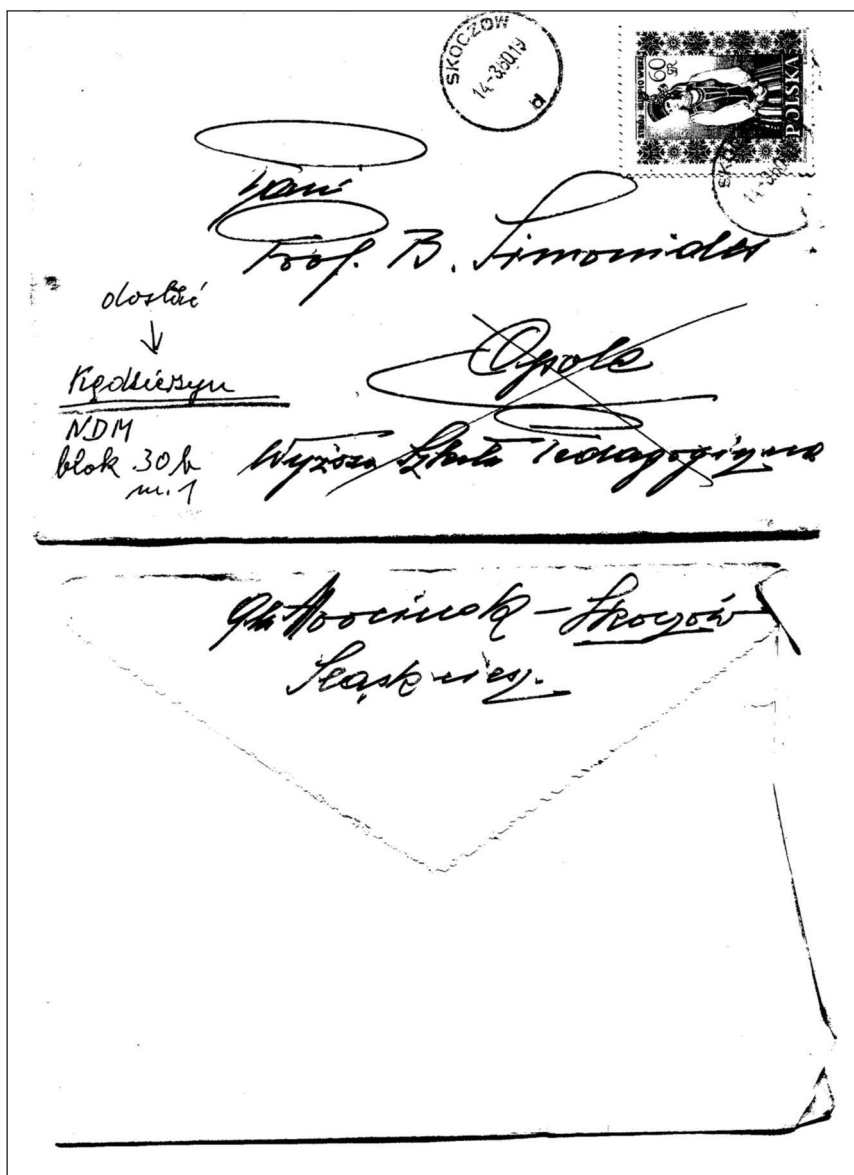 SKOCZÓW
14-3.60.19
d
60 GR
POLSKA
SKO
14-3.60
Pani
Prof. B. Simonides
dosłać
↓
Kędzierzyn
NDM
blok 30b
m. 1
Opole
Wyższa Szkoła Pedagogiczna
Morcinek – Skoczów
Śląsk ciesz.